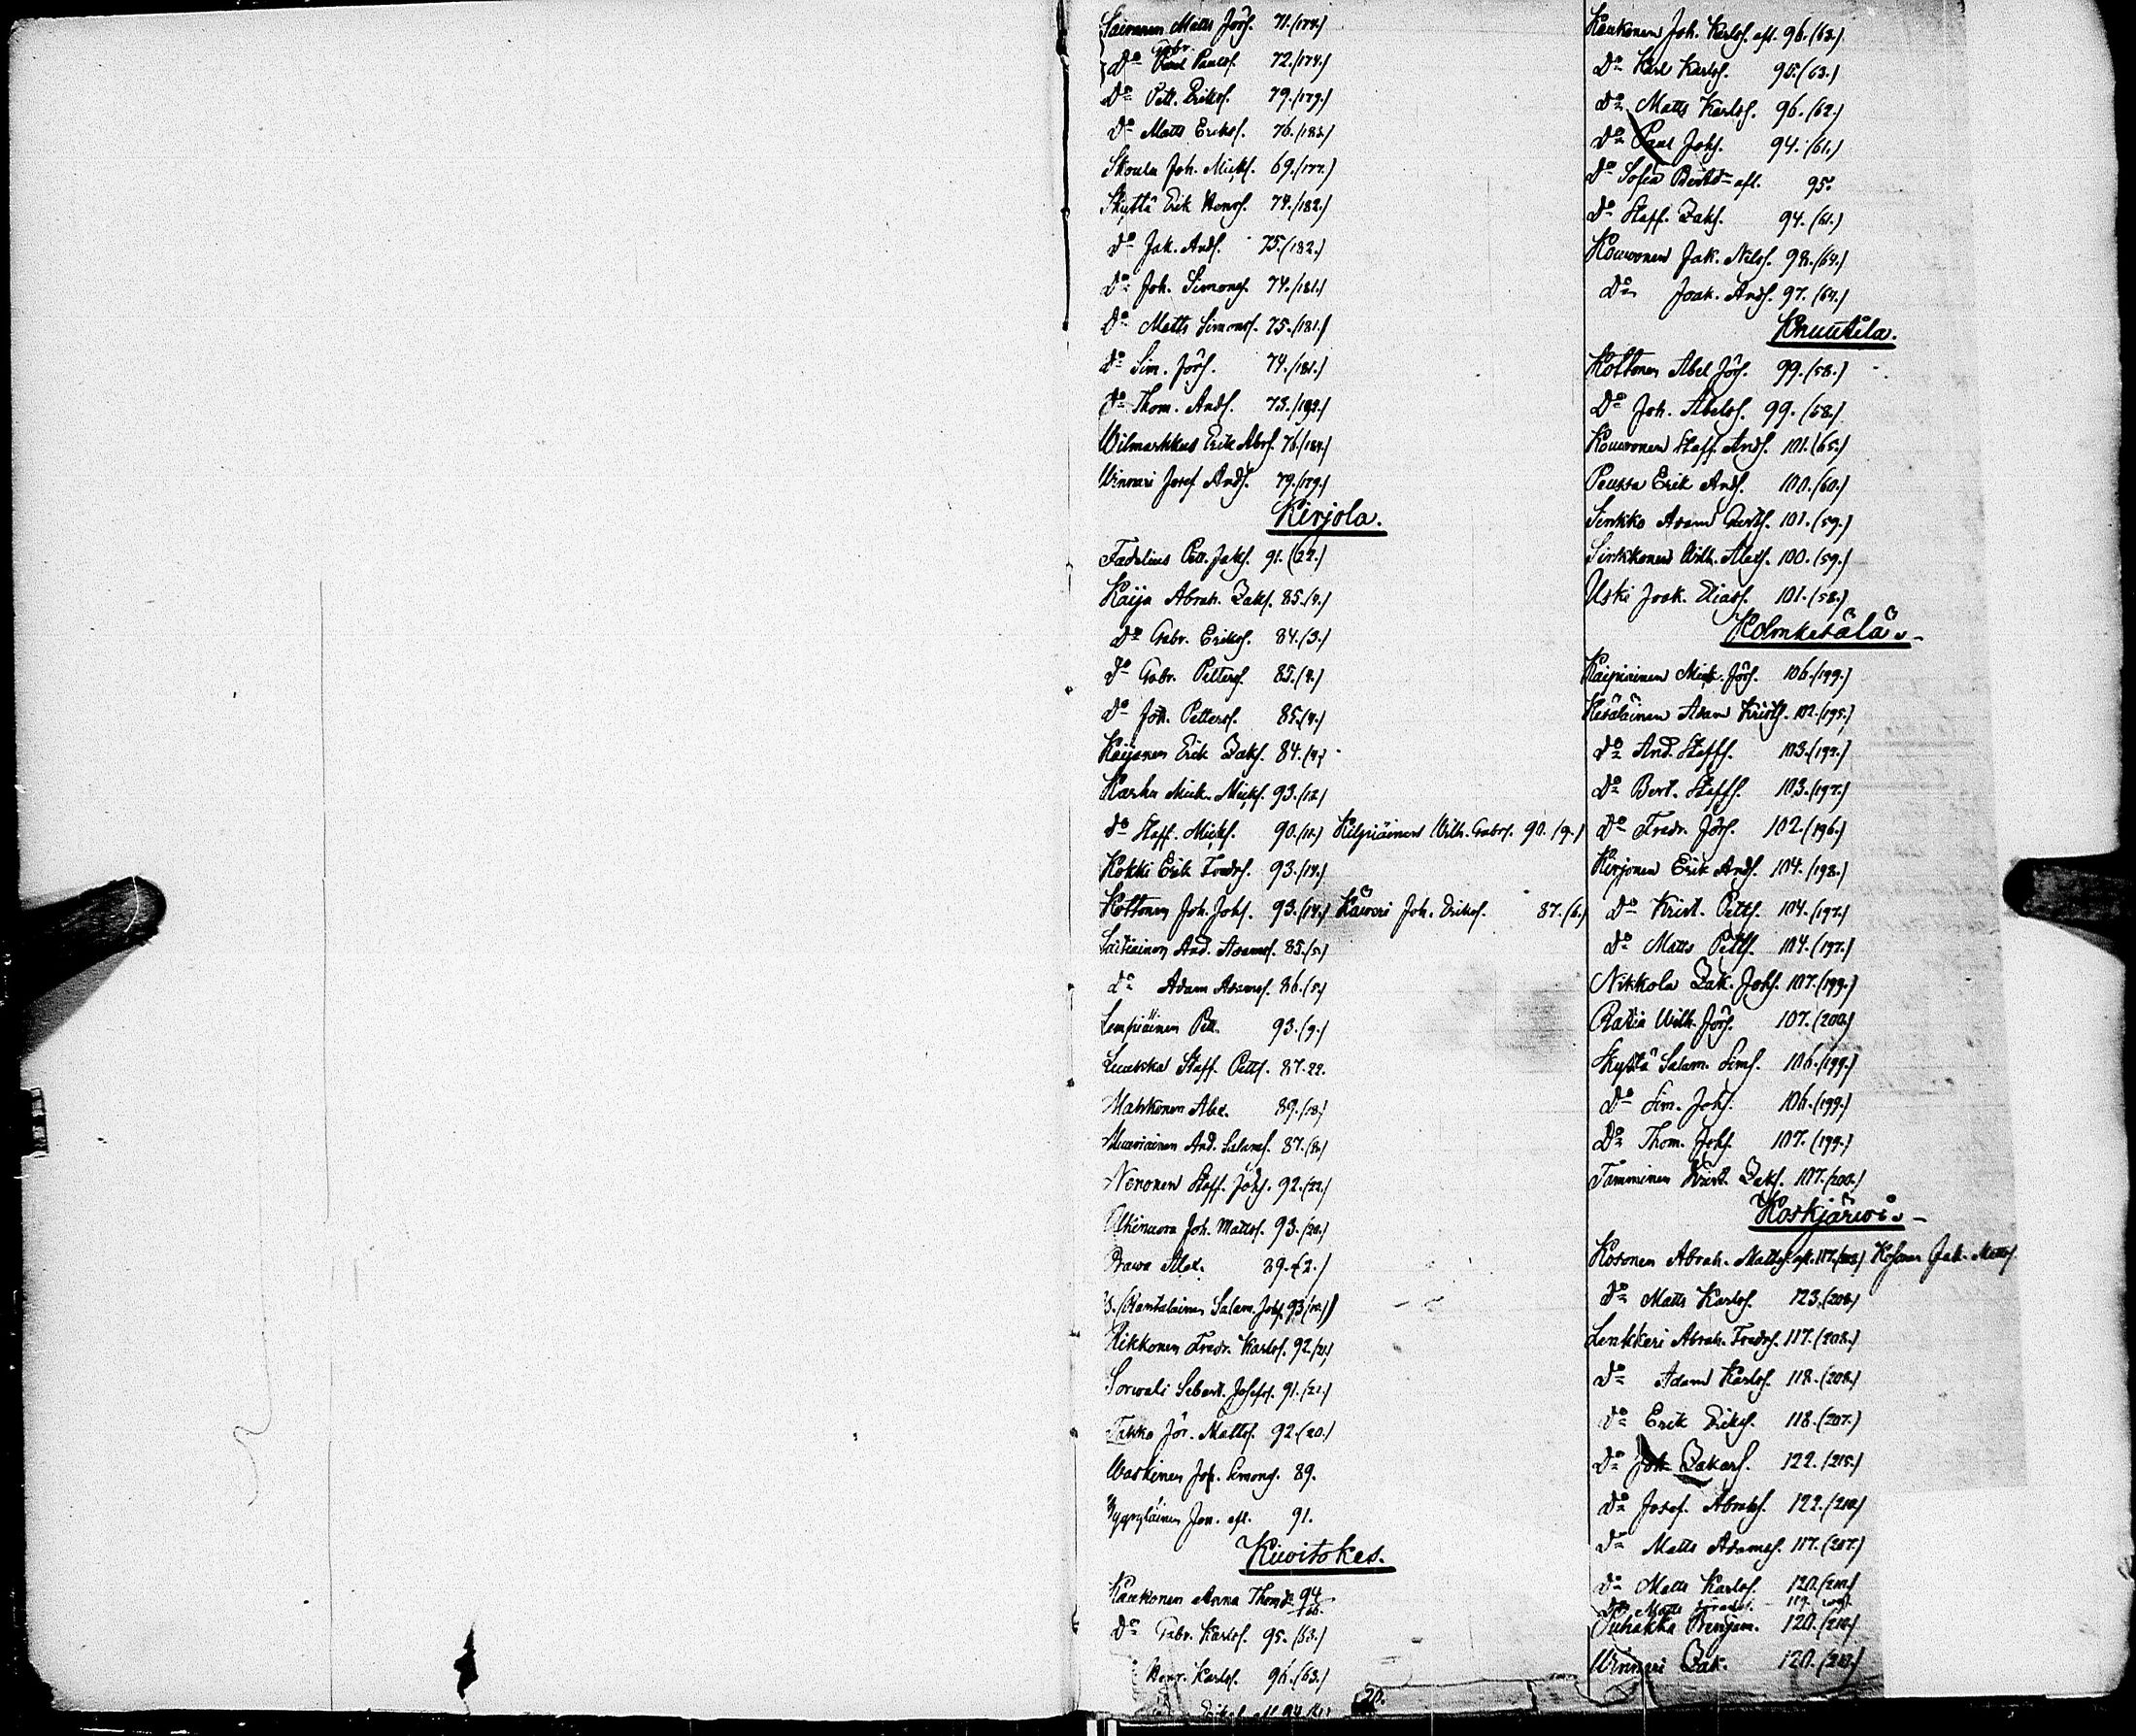 Matts Jörs. 71. (174.)
Do Gabr. Paulss. 72. (174.)
Do Pett. Erikss. 79. (179.)
Do Matts Erikss. 76. (183.)
Skoula Joh. Micks. 69. (177.)
Skyttä Erik Henrs. 74. (182.)
Do Jak. Ands. 75. (182.)
Do Joh. Simonss. 74. (181.)
Do Matts Simonss. 75. (181.)
Do Sim. Jörs. 74. (181.)
Do Thom. Ands. 73. (182.)
Wilmarkkus Erik Abrs. 76. (184.)
Winnari Josef Ands. 79. (179.)
Kirjola.
Fadelius Pett. Jaks. 91. (22.)
Kaija Abrah. Zaks. 85. (4.)
Do Gabr. Erikss. 84. (3.)
Do Gabr. Petterss. 85. (4.)
Do Joh. Petterss. 85. (4.)
Kaijanen Erik Zaks. 84. (4.)
Karhu Mick. Micks. 93. (12.)
Do Staff. Micks. 90. (11.) Kilpiäinen Wilh. Gabrs. 90. (9.)
Kokki Erik Fredrs. 93. (14.)
Kottonen Joh. Johs. 93. (14.) Käweri Joh. Erikss. 87. (6.)
And. Adamss. 85. (5.)
Do Adam Adamss. 86. (5.)
Lempiäinen Pett. 93. (9.)
Luukka Staff. Petts. 87. 22.
Mahkonen Alex. 89. (18.)
And. Salams. 87. (8.)
Nenonen Staff. Johs. 92. (22.)
Ahinuora Joh. Mattss. 93. (20.)
Prawa Alex. 89. (2.)
Rantalainen Salam. Johs. 93.
Rikkonen Fredr. Karlss. 92. (21.)
Sorwali Sebast. Josefss. 91. (21.)
Tahko Jör. Mattss. 92. (20.)
Waskinen Joh. Simonss. 89.
Jon. afl. 91.
Kiwitokes.
Kaukonen Anna Thomdr 94/66.
Do Gabr. Karlss. 95. (63.)
Henr. Karlss. 96. (63.)
20.
Kaukonen Joh. Karlss. afl. 96. (63.)
Do Karl Karlss. 95. (63.)
Do Matts Karlss. 96. (62.)
Do Paul Johs. 94. (61.)
Do Sofia afl. 95.
Do Staff. Zaks. 94. (61.)
Kouwonen Jak. Nilss. 98. (64.)
Do Joak. Ands. 97. (64.)
Knuutila.
Kottonen Abel Jörs. 99. (58.)
Do Joh. Abelss. 99. (58.)
Kouwonen Staff. Ands. 101. (65.)
Peussa Erik Ands. 100. (60.)
Sinkko Adam 101. (59.)
Sinkkonen Wilh. Alexs. 100. (59.)
Uski Joak. Eliass. 101. (58.)
Kolmikesälä.
Kaipiainen Mick. Jörs. 106. (199.)
Kesäläinen Adam Krists. 102. (195.)
Do And. Staffs. 103. (197.)
Do Bert. Staffs. 103. (197.)
Do Fredr. Jörs. 102. (196.)
Kirjonen Erik Ands. 104. (198.)
Do Krist. Petts. 104. (197.)
Do Matts Petts. 104. (197.)
Nikkola Zak. Johs. 107. (199.)
Ratia Wilh. Jörs. 107. (200.)
Skyttä Salam. Sims. 106. (199.)
Do Sim. Johs. 106. (199.)
Do Thom. Johs. 107. (199.)
Tamminen Krist. Zaks. 107. (200.)
Koskjärwi.
Kosonen Abrah. Mattss. afl. 117. Kosonen Jak. Mattss.
Do Matts Karlss. 123. (208.)
Lenkkeri Abrah. Fredrs. 117. (208.)
Do Adam Karlss. 118. (208.)
Do Erik Erikss. 118. (207.)
Do Joh. Zakars. 122. (215.)
Do Josef Abrahs. 122. (210.)
Do Matts Adamss. 117. (207.)
Do Matts Karlss. 120.
Do Matts 119.
Puhakka Benjam. 120. (210.)
Winnari Zak. 120. (213.)